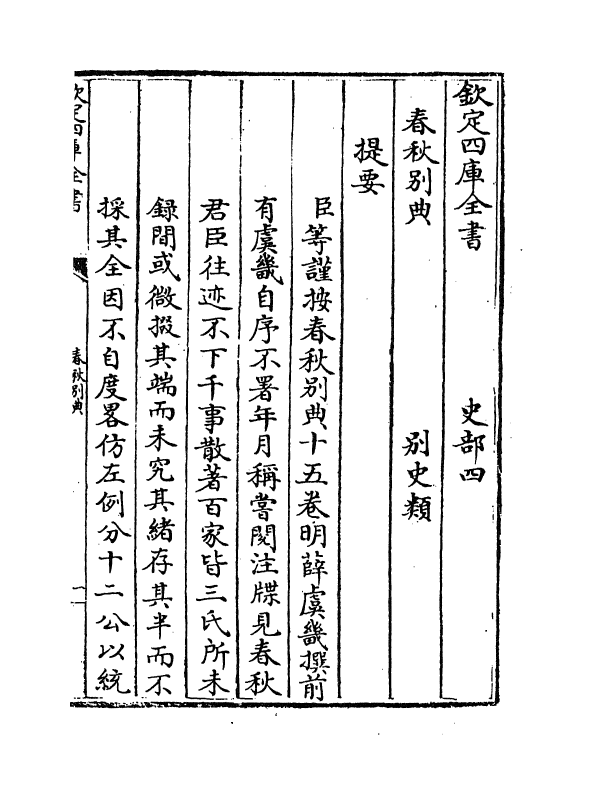 欽定四庫全書　　　　史部四
春秋別典　　　　　　別史類
提要
臣等謹按春秋別典十五卷明薛虞畿撰前
有虞畿自序不署年月稱嘗閱注牒見春秋
君臣往迹不下千事散著百家皆三氏所未
錄間或微掇其端而未究其緒存其半而不
採其全因不自度畧仿左例分十二公以統
欽定四庫全書
春秋別典
一